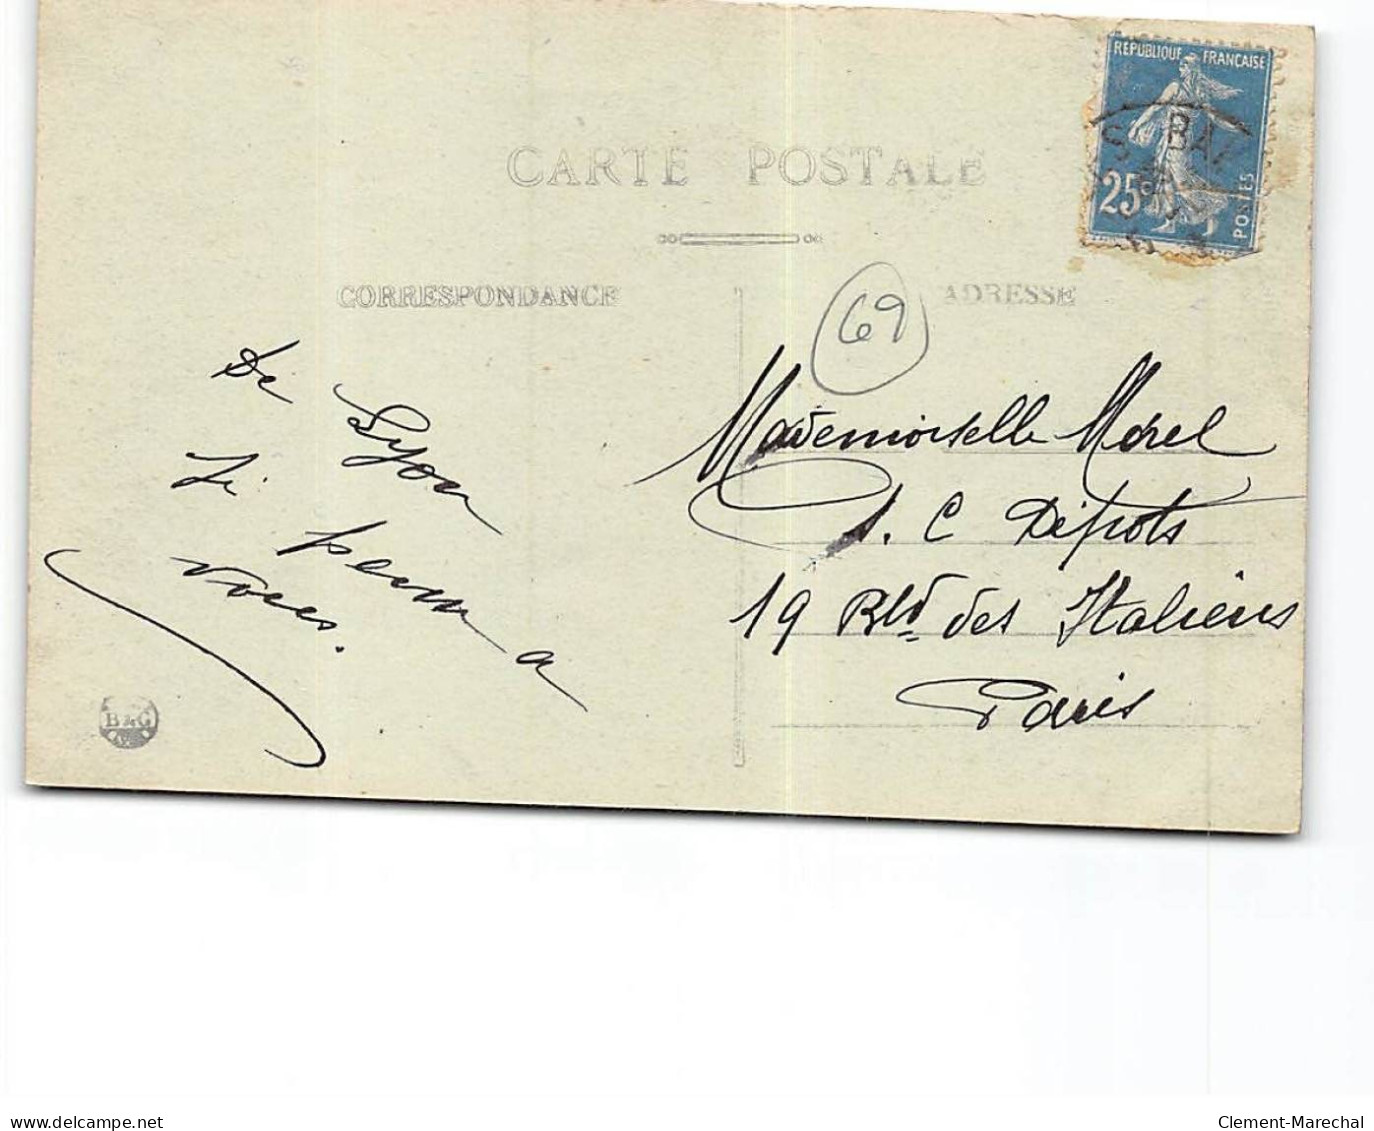 RÉPUBLIQUE FRANÇAISE
S BAZ
25c
POSTES
CARTE POSTALE
CORRESPONDANCE
ADRESSE
69
De Lyon
Je pense a
vous.
Mademoiselle Morel
S. C Dépots
19 Blvd des Italiens
Paris
B & G
delcampe.net
Clement-Marechal